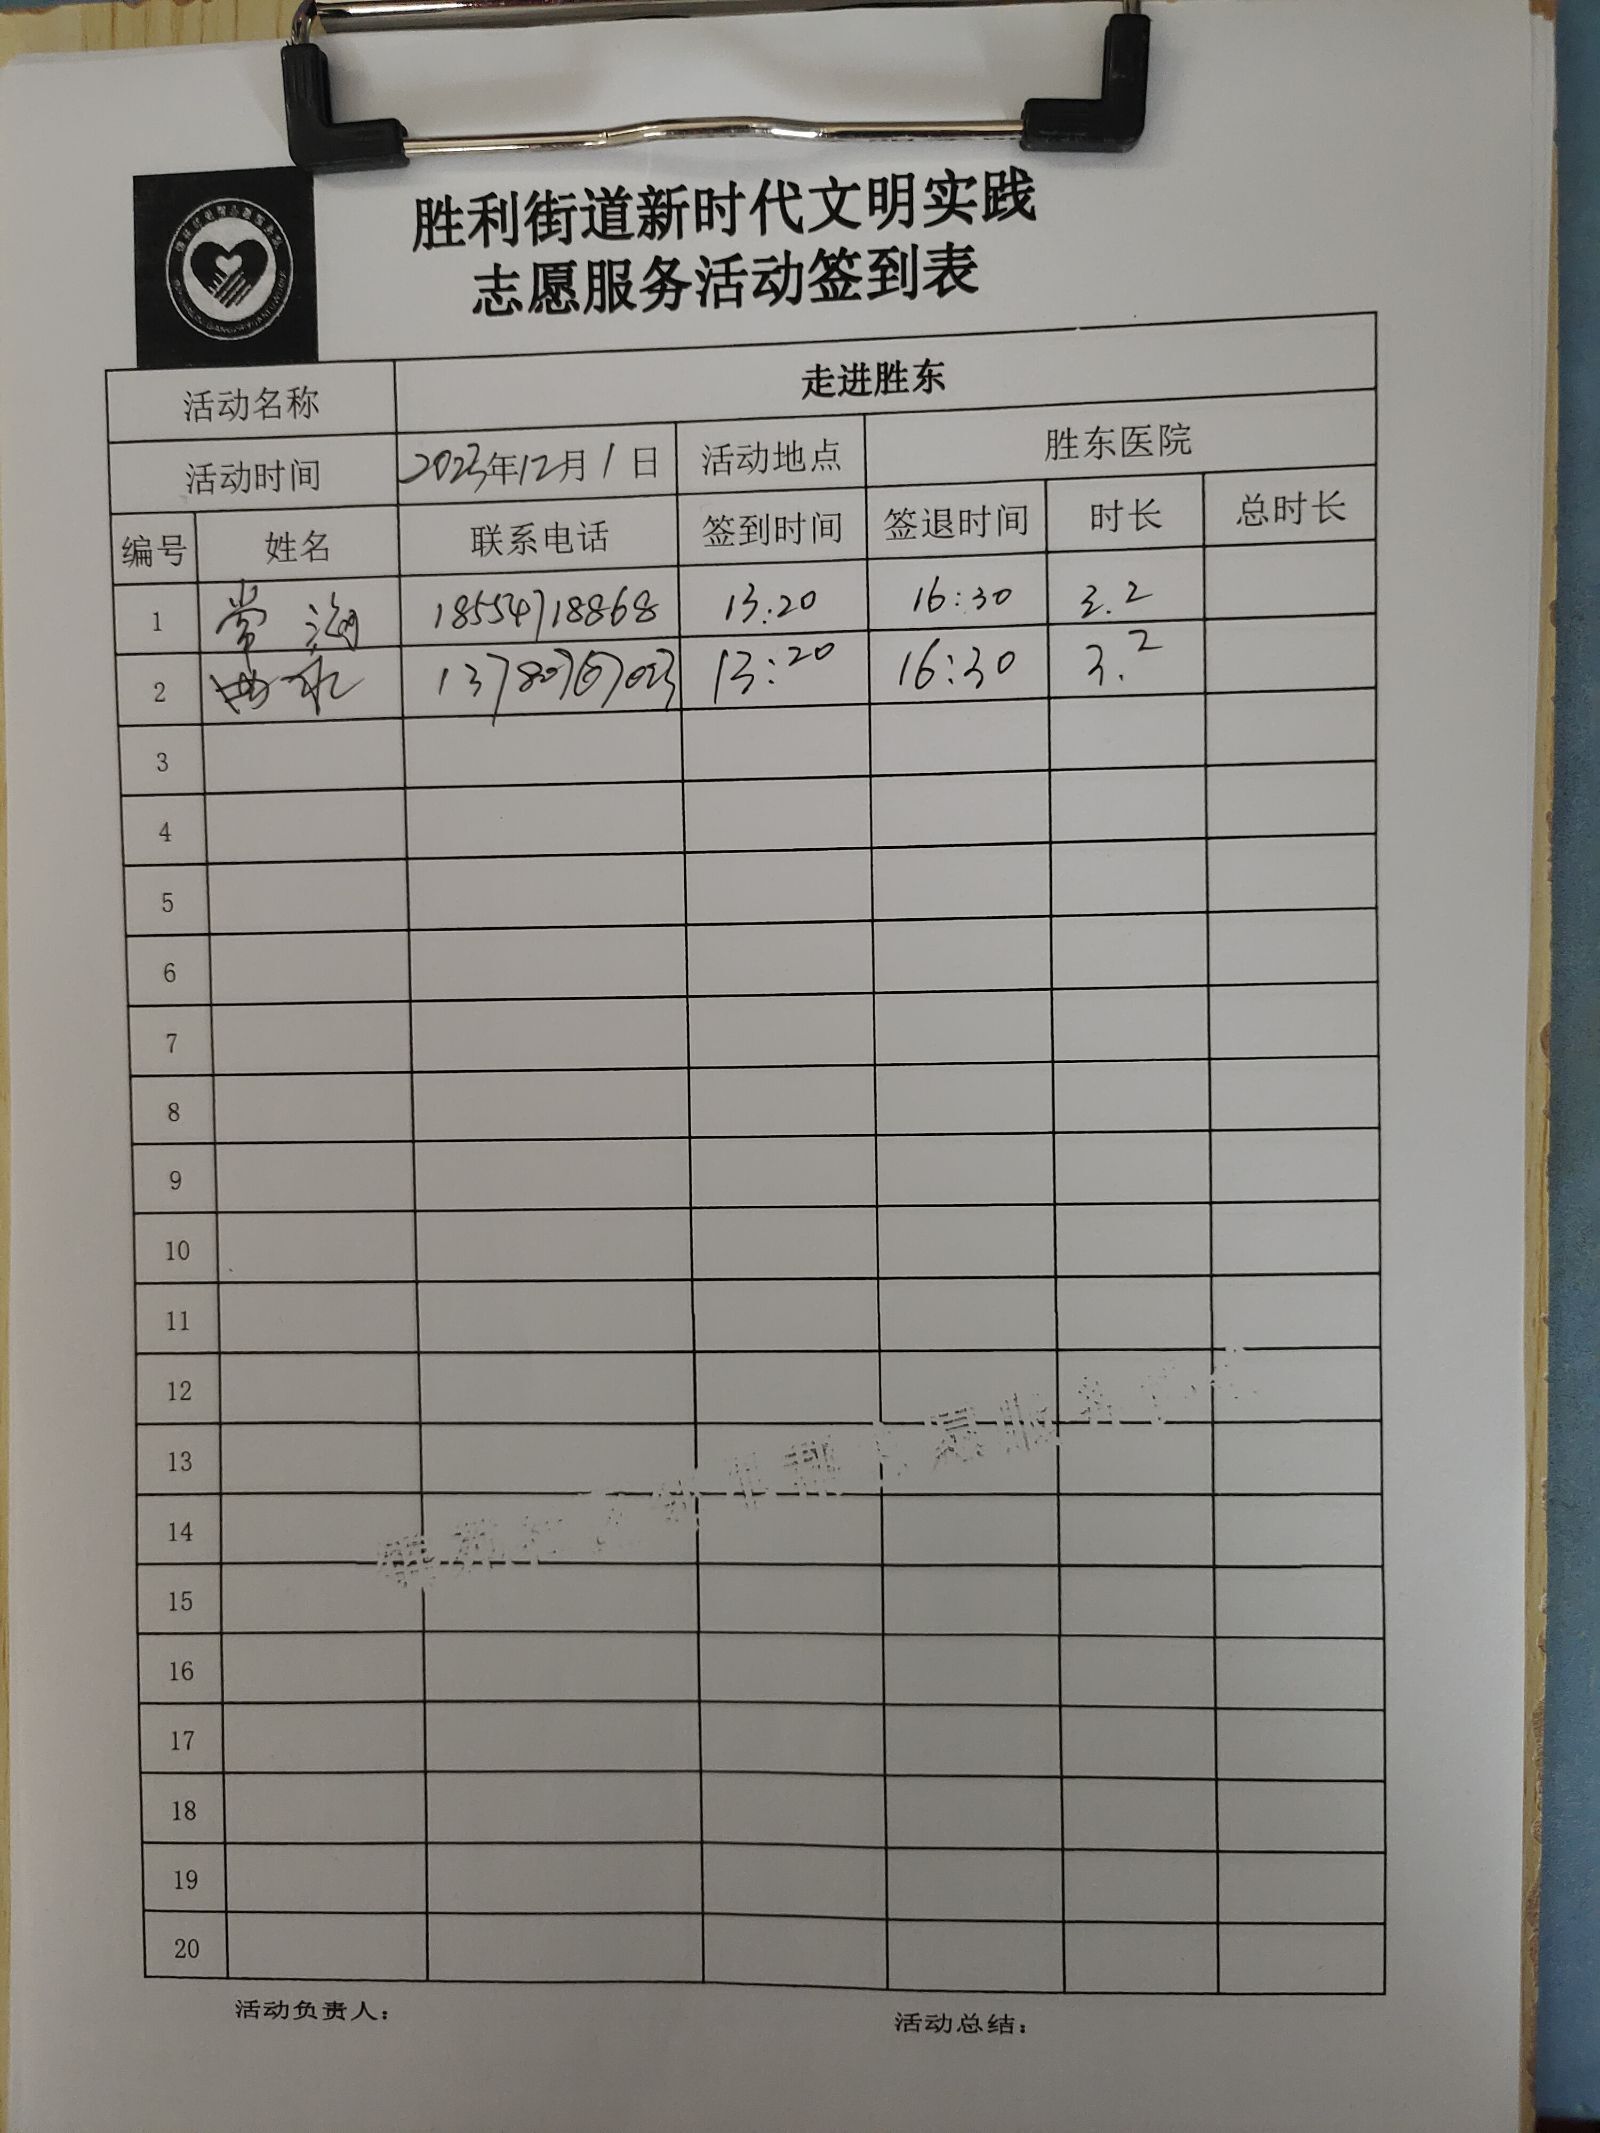 胜利街道新时代文明实践
志愿服务活动签到表
活动名称 走进胜东
活动时间 2023年12月1日 活动地点 胜东医院
编号 姓名 联系电话 签到时间 签退时间 时长 总时长
1 常海 18554718868 13:20 16:30 3.2
2 13:20 16:30 3.2
3
4
5
6
7
8
9
10
11
12
13
14
15
16
17
18
19
20
活动负责人： 活动总结：